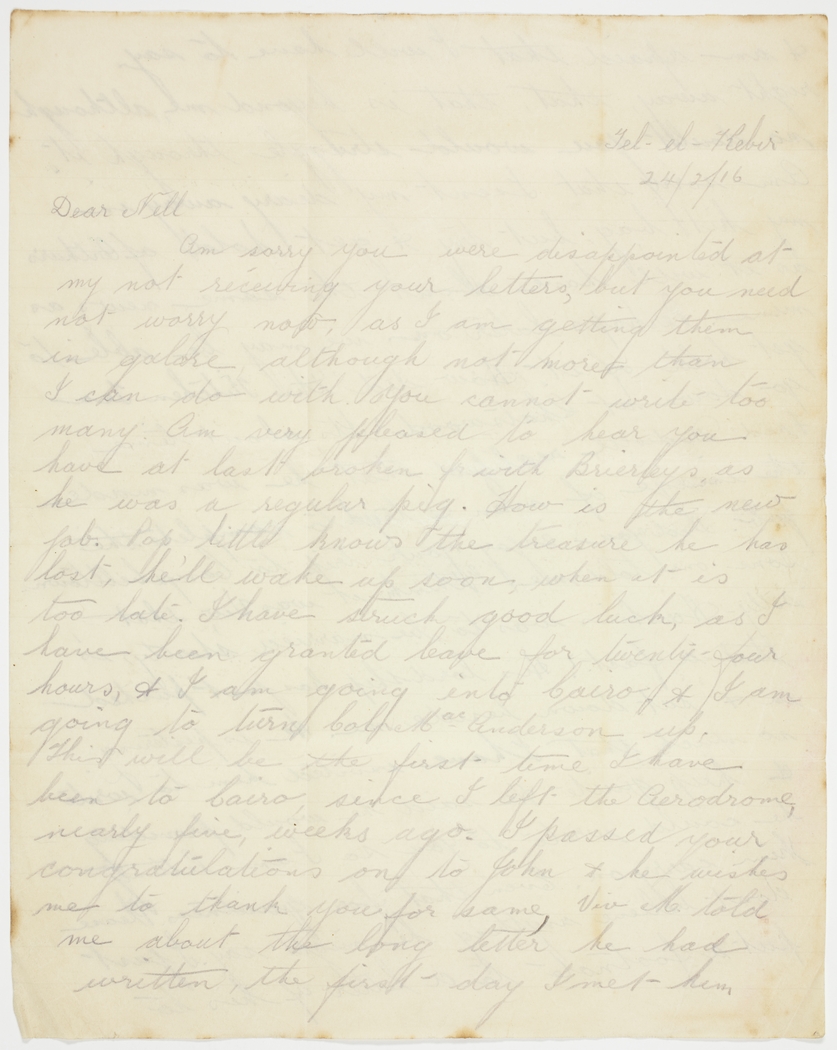 Tel-el-Kebir
24/2/16
Dear Nell
Am sorry you were disappointed at
my not receiving your letters, but you need
not worry now, as I am getting them
in galore, although not more than
I can do with. You cannot write too
many. Am very pleased to hear you
have at last broken with Brierleys as
he was a regular pig. How is the new
job. Pop little knows the treasure he has
lost, he'll wake up soon, when it is
too late. I have struck good luck, as I
have been granted leave for twenty-four
hours, & I am going into Cairo, & I am
going to turn Anderson up.
This will be the first time I have
been to Cairo, since I left the Aerodrome,
nearly five, weeks ago. I passed your
congratulations on, to John & he wishes
me to thank you for same, Viv M. told
me about the long letter he had
written, the first day I met him